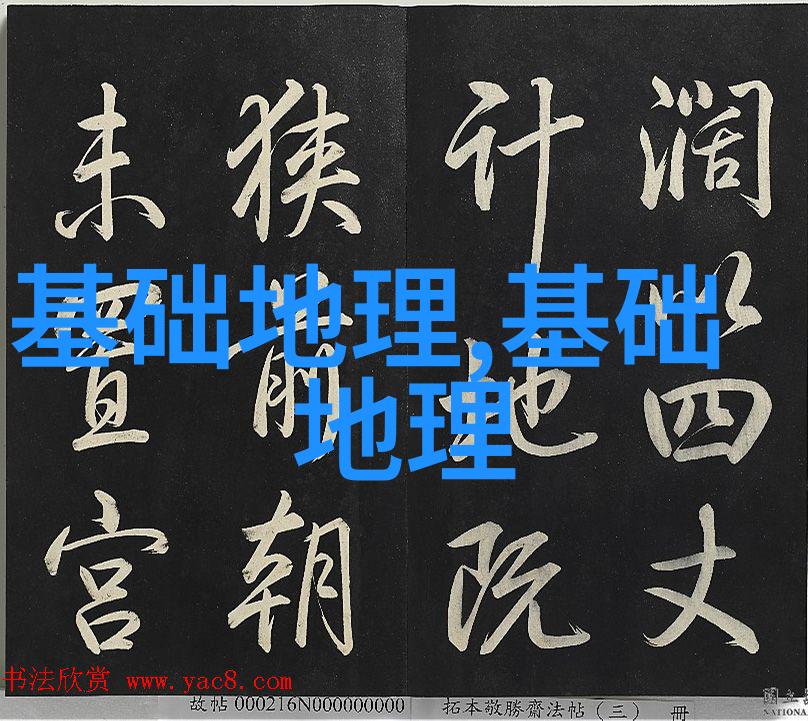 阔以四丈
计地既
狭前朝
未置宫
基础地理,基础
地理
书法欣赏 www.yac8.com
故帖000216N000000000 拓本敬勝齋法帖（三） 冊
國立
NATIONA